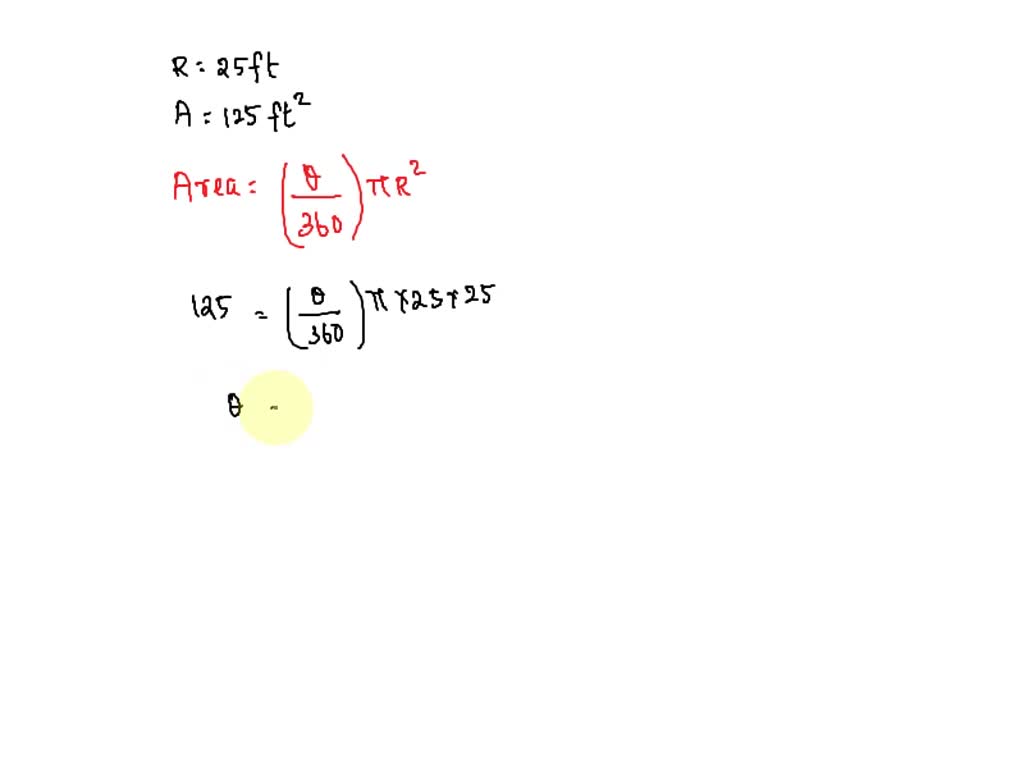 R = 25ft
A = 125 ft²
Area = (θ/360) πR²
125 = (θ/360) π × 25 × 25
θ -